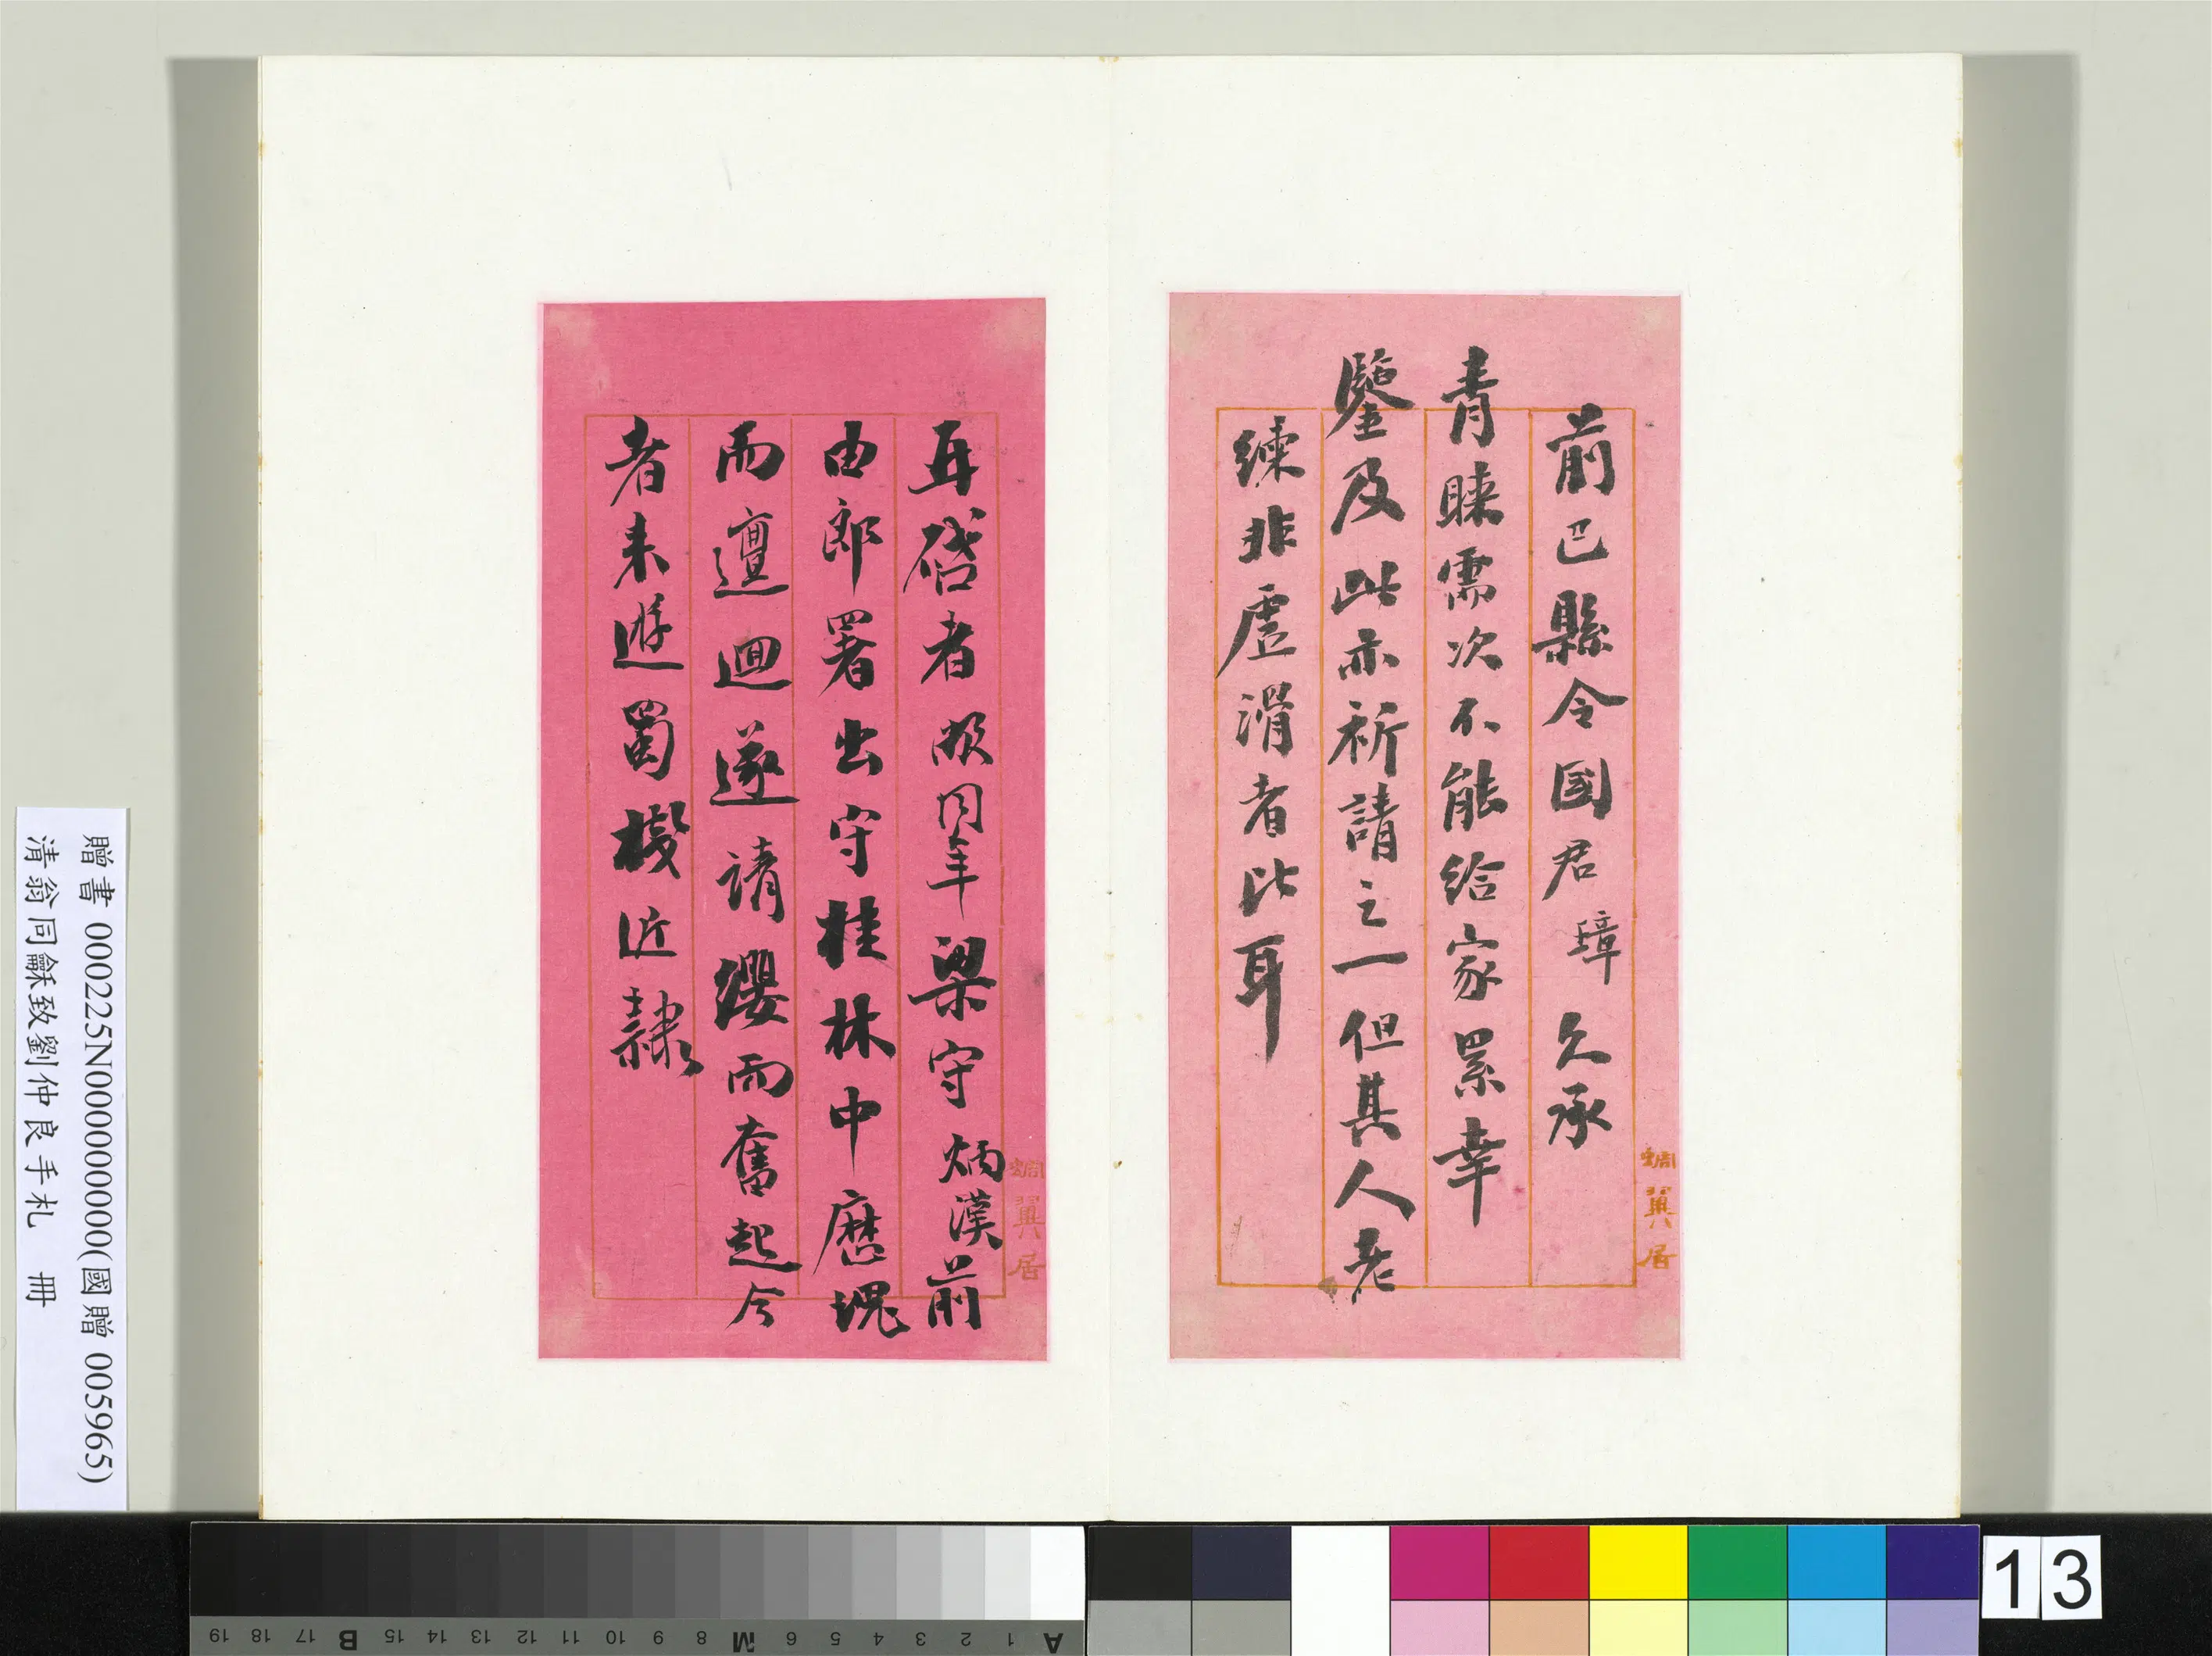 前巴縣令國君璋久承
青睞需次不能給家累幸
鑒及此亦祈請之一但其人老
練非虛滑者比耳
蜩翼居
再啓者敝同年梁守炳漢前
由郎署出守桂林中歷塊
而邅迴遂請纓而奮起今
者來遊蜀棧近隸
蜩翼居
贈書 000225N000000000(國贈 005965)
清翁同龢致劉仲良手札 冊
A 1 2 3 4 5 6 M 8 9 10 11 12 13 14 15 B 17 18 19
13